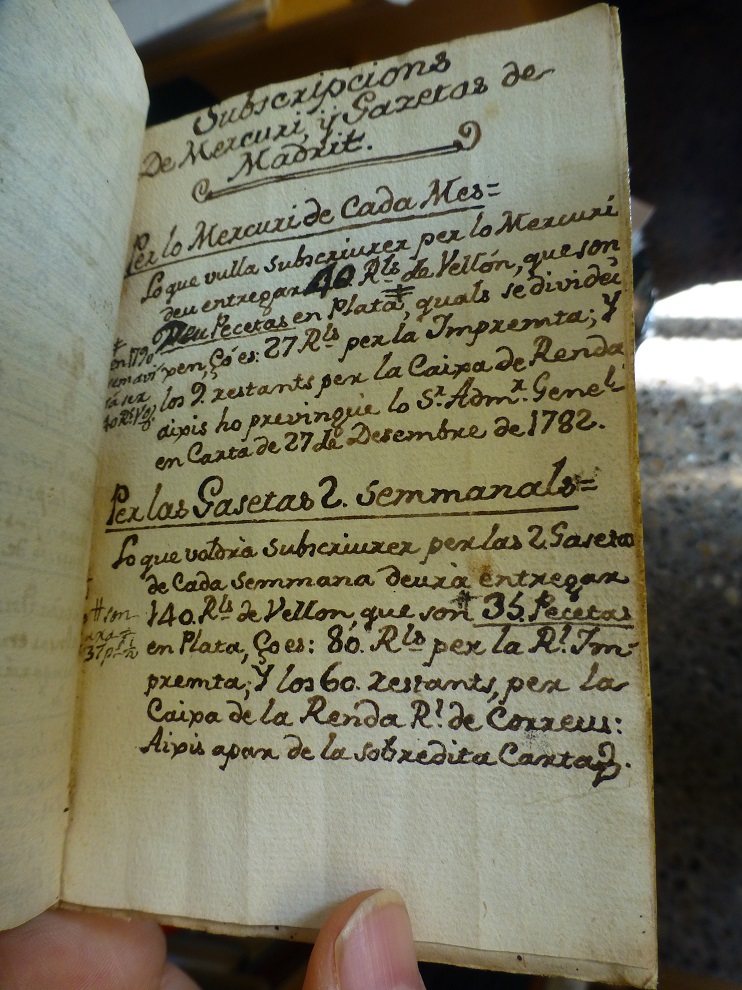 Subscripcions
De Mercuri, y Gazetas de
Madrit.
Per lo Mercuri de Cada Mes=
Lo que vulla Subscriurer per lo Mercuri
deu entregar 40 Rls de Vellón, que son
Deu Pecetas en Plata, quals se dividei-
xen, Ço es: 27 Rls per la Impremta; Y
los 9. restants per la Caixa de Renda
aixis ho previngue lo Sr. Admr. Genel.
en Carta de 27 de Desembre de 1782.
en 1790
Per las Gasetas 2. Semmanals=
Lo que voldria Subscriurer per las 2 Gasetas
de Cada Semmana deura entregar
140. Rls de Vellon, que son 35. Pecetas
en Plata, Ço es: 80. Rls per la Rl. Im-
premta; Y los 60. restants, per la
Caixa de la Renda Rl. de Correus:
Aixis apar de la sobredita Carta.
son
37